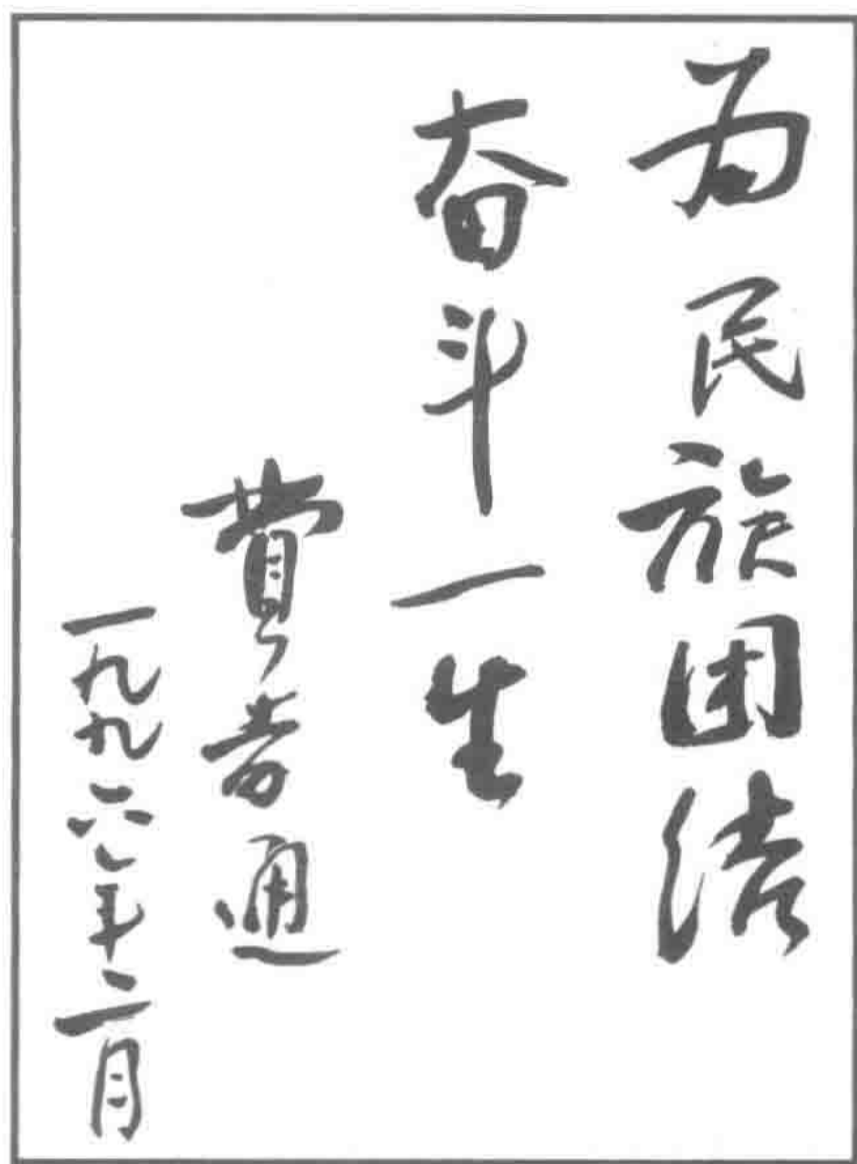 为民族团结
奋斗一生
費孝通
一九九六年二月